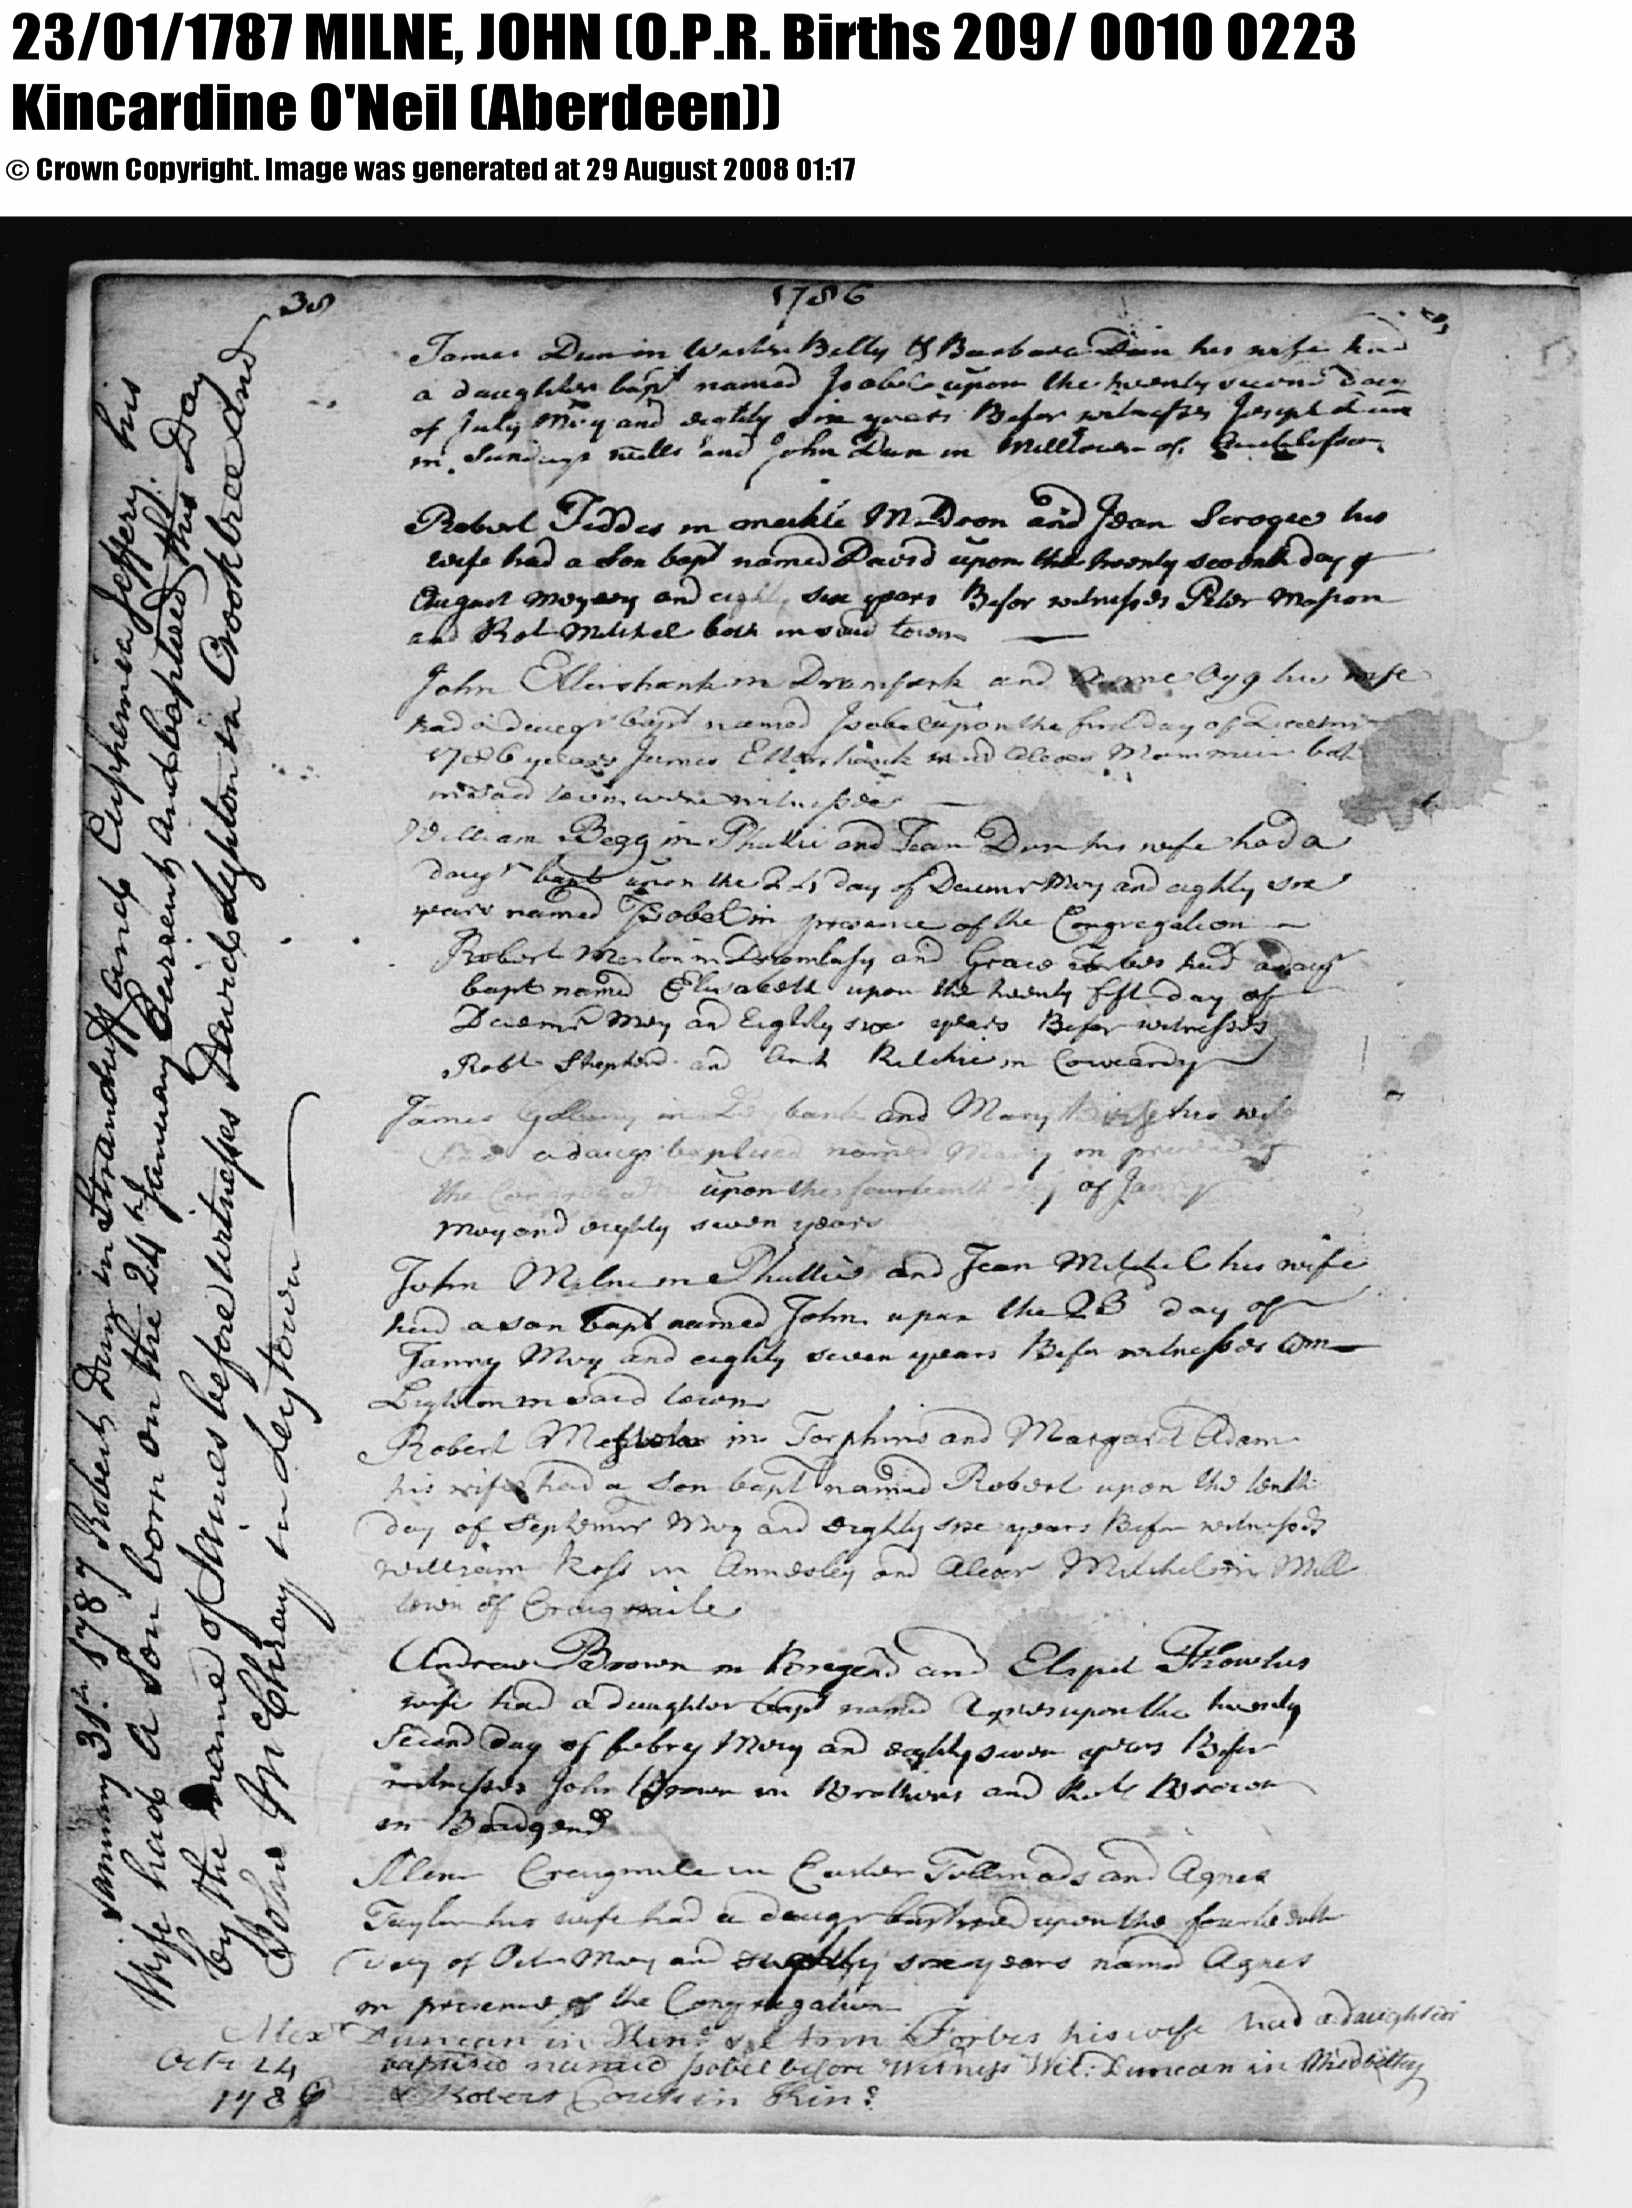 23/01/1787 MILNE, JOHN (O.P.R. Births 209/ 0010 0223
Kincardine O'Neil (Aberdeen))
© Crown Copyright. Image was generated at 29 August 2008 01:17
38
1786
James Dun in Wester Belty & Barbara Dun his wife had
a daughter bapt named Isobel upon the twenty second day
of July Mvy and eightly six years Befor witnesses Joseph Dun
in mills and John Dun in Milltown of
Robert Feddes in meikle and Jean Scrogee his
wife had a Son bapt named David upon the twenty seventh day of
August and eighty six years Befor witnesses Peter Masson
and Rot Mitchel both in said town
John Ellershank in and his wife
had a daugr bapt named Isobel upon the first day of Decemr
1786 years James Ellershank and Alexr both
in said town were witnesses
William Begg in Phillie and Jean Dun his wife had a
daugr bapt upon the 24 day of Decemr Mvy and eighty six
years named Isobel in presence of the Congregation
Robert Merton in Dromlasy and Grace Forbes had a daugr
bapt named Elisabeth upon the twenty first day of
Decemr Mvy and Eightly six years Befor witnesses
Robt Shepherd and Ritchie in
James in bank and Mary his wife
had a daugr baptised named Mary in presence of
the upon the fourteenth day of Janry
Mvy and eighty seven years
John Milne in Phillie and Jean Mitchel his wife
had a son bapt named John upon the 23 day of
Janry Mvy and eighty seven years Befor witnesses Wm
Lighton in said town
Robert in Torphins and Margaret Adam
his wife had a Son bapt named Robert upon the tenth
day of Septemr Mvy and eighty six years Befor witnesses
William Ross in Annesley and Alexr Mitchel in Mill
town of Craigmile
Andrew Brown in and Elspet his
wife had a daughter bapt named Agnes upon the twenty
Second day of febry Mvy and eighty seven years Befor
witnesses John Brown in and Robt Brown
in
Craigmile in Easter Tillmads and Agnes
Taylor his wife had a daugr baptised upon the fourteenth
day of Octr Mvy and eightly six years named Agnes
in presence of the Congregation
Alexr Duncan in Kin: & Ann Forbes his wife had a daughter
Octr 24 baptised named Isobel before witness Wil: Duncan in Midbelty
1786 & Robert Couts in Kin:
January 31st. 1787 Robert Dun in Stranduff and Eupphemia Jeffery his
Wife had a Son born on the 24th January Current and baptised this Day
by the name of James before Witnesses David Lighton in Crooktree and
John McChray in Leytown